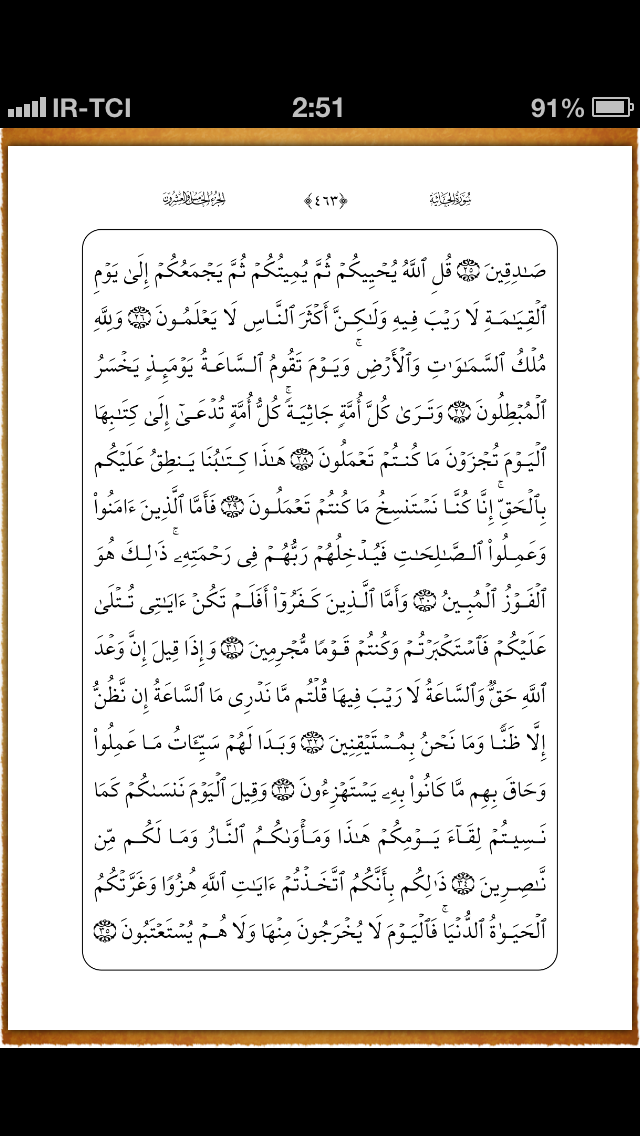 IR-TCI 2:51 91%
سُورَةُ الجَاثِيَة ﴿٤٦٣﴾ الجُزءُ الخَامِسُ وَالعِشرُونَ
صَـٰدِقِينَ ٢٥ قُلِ ٱللَّهُ يُحْيِيكُمْ ثُمَّ يُمِيتُكُمْ ثُمَّ يَجْمَعُكُمْ إِلَىٰ يَوْمِ
ٱلْقِيَـٰمَةِ لَا رَيْبَ فِيهِ وَلَـٰكِنَّ أَكْثَرَ ٱلنَّاسِ لَا يَعْلَمُونَ ٢٦ وَلِلَّهِ
مُلْكُ ٱلسَّمَـٰوَٰتِ وَٱلْأَرْضِ ۚ وَيَوْمَ تَقُومُ ٱلسَّاعَةُ يَوْمَئِذٍ يَخْسَرُ
ٱلْمُبْطِلُونَ ٢٧ وَتَرَىٰ كُلَّ أُمَّةٍ جَاثِيَةً ۚ كُلُّ أُمَّةٍ تُدْعَىٰٓ إِلَىٰ كِتَـٰبِهَا
ٱلْيَوْمَ تُجْزَوْنَ مَا كُنتُمْ تَعْمَلُونَ ٢٨ هَـٰذَا كِتَـٰبُنَا يَنطِقُ عَلَيْكُم
بِٱلْحَقِّ ۚ إِنَّا كُنَّا نَسْتَنسِخُ مَا كُنتُمْ تَعْمَلُونَ ٢٩ فَأَمَّا ٱلَّذِينَ ءَامَنُوا۟
وَعَمِلُوا۟ ٱلصَّـٰلِحَـٰتِ فَيُدْخِلُهُمْ رَبُّهُمْ فِى رَحْمَتِهِۦ ۚ ذَٰلِكَ هُوَ
ٱلْفَوْزُ ٱلْمُبِينُ ٣٠ وَأَمَّا ٱلَّذِينَ كَفَرُوٓا۟ أَفَلَمْ تَكُنْ ءَايَـٰتِى تُتْلَىٰ
عَلَيْكُمْ فَٱسْتَكْبَرْتُمْ وَكُنتُمْ قَوْمًا مُّجْرِمِينَ ٣١ وَإِذَا قِيلَ إِنَّ وَعْدَ
ٱللَّهِ حَقٌّ وَٱلسَّاعَةُ لَا رَيْبَ فِيهَا قُلْتُم مَّا نَدْرِى مَا ٱلسَّاعَةُ إِن نَّظُنُّ
إِلَّا ظَنًّا وَمَا نَحْنُ بِمُسْتَيْقِنِينَ ٣٢ وَبَدَا لَهُمْ سَيِّـَٔاتُ مَا عَمِلُوا۟
وَحَاقَ بِهِم مَّا كَانُوا۟ بِهِۦ يَسْتَهْزِءُونَ ٣٣ وَقِيلَ ٱلْيَوْمَ نَنسَىٰكُمْ كَمَا
نَسِيتُمْ لِقَآءَ يَوْمِكُمْ هَـٰذَا وَمَأْوَىٰكُمُ ٱلنَّارُ وَمَا لَكُم مِّن
نَّـٰصِرِينَ ٣٤ ذَٰلِكُم بِأَنَّكُمُ ٱتَّخَذْتُمْ ءَايَـٰتِ ٱللَّهِ هُزُوًا وَغَرَّتْكُمُ
ٱلْحَيَوٰةُ ٱلدُّنْيَا ۚ فَٱلْيَوْمَ لَا يُخْرَجُونَ مِنْهَا وَلَا هُمْ يُسْتَعْتَبُونَ ٣٥